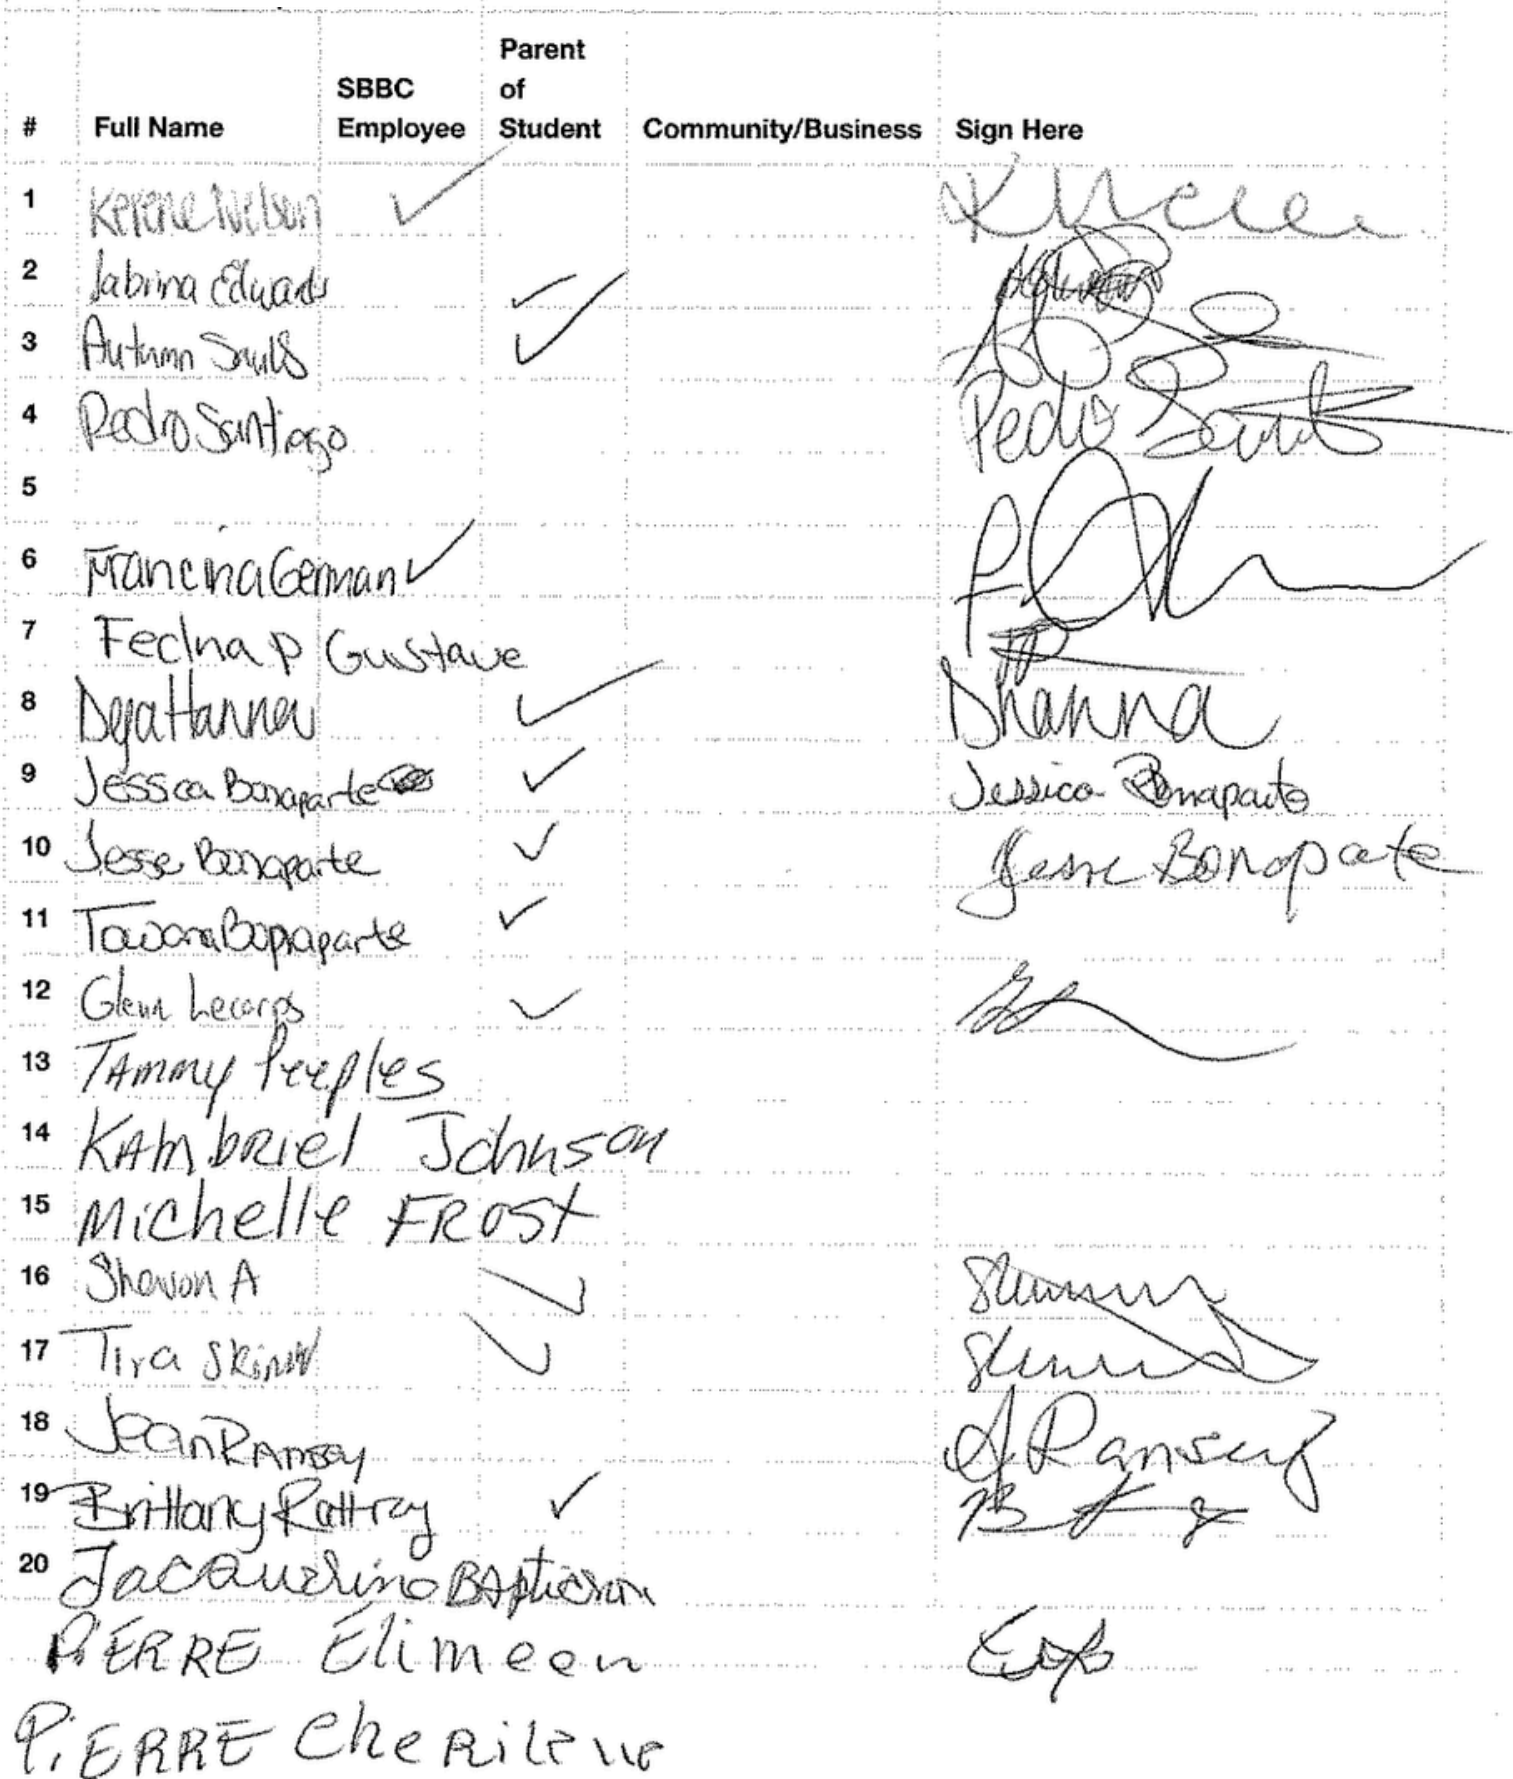 # Full Name SBBC Employee Parent of Student Community/Business Sign Here
1 Kerene Nelson
2 Sabrina Edwards
3 Autumn Sauls
4 Pedro Santiago Pedro
5
6 Francina German
7 Feclna P Gustave
8 Deja Hanna DHanna
9 Jessica Bonaparte Jessica Bonaparte
10 Jesse Bonaparte Jesse Bonaparte
11 Tawana Bonaparte
12 Glenn Lecorps
13 TAmmy Peeples
14 KAmbRiel Johnson
15 Michelle FROST
16 Shavon A
17 Tira
18 Jean RAmsey Ramsey
19 Brittany Rattray
20
PiERRE Elimeen
PiERRE